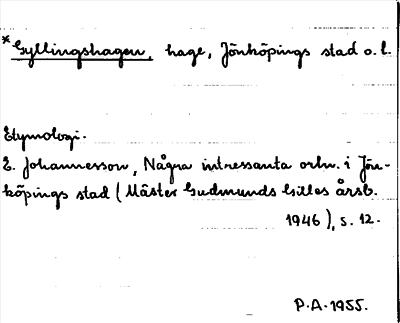 *Gyllingshagen, hage, Jönköpings stad o. l.
Etymologi.
E. Johannesson, Några intressanta ortn. i Jön-
köpings stad (Mäster Gudmunds Gilles årsb.
1946), s. 12.
P.A. 1955.